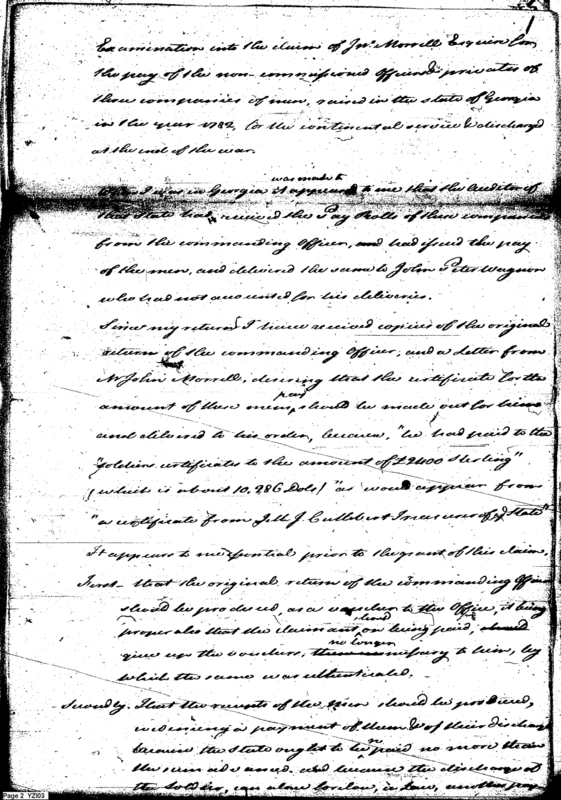 1
Examination into the claim of Jno. Morrell Esquire for
the pay of the non-commissioned Officers & privates of
three companies of men, raised in the state of Georgia
in the year 1782, for the continental service & discharged
at the end of the war.
was made to
When I was in Georgia it appeared to me that the Auditor of
that State had received the Pay Rolls of these companies
from the commanding Officer, and had issued the pay
of the men, and delivered the same to John Peter Wagnon
who had not accounted for his deliveries.
Since my return I have received copies of the original
return of the commanding Officer, and a Letter from
Mr John Morrell, desiring that the certificate for the
pay
amount of these men, should be made out for him
and delivered to his order, because, "he had paid to the
"soldiers certificates to the amount of £2400 Sterling"
(which is about 10,286 Dols) "as would appear from
"a certificate from J. Cuthbert Treasurer of State"
It appears to me essential prior to the grant of this claim,
First – that the original return of the commanding Officer
should be produced, as a voucher to the Office, it being
should
proper also that the claimant on being paid, should
no longer
give up the vouchers, necessary to him, by
which the same was authenticated.
Secondly. That the receipts of the men should be produced,
evidencing a payment of them & of their discharge
because the State ought to be paid no more than
the sum advanced. and because the discharge of
the soldier, can alone foreclose, in Law, another pay
Page 2 YZI03